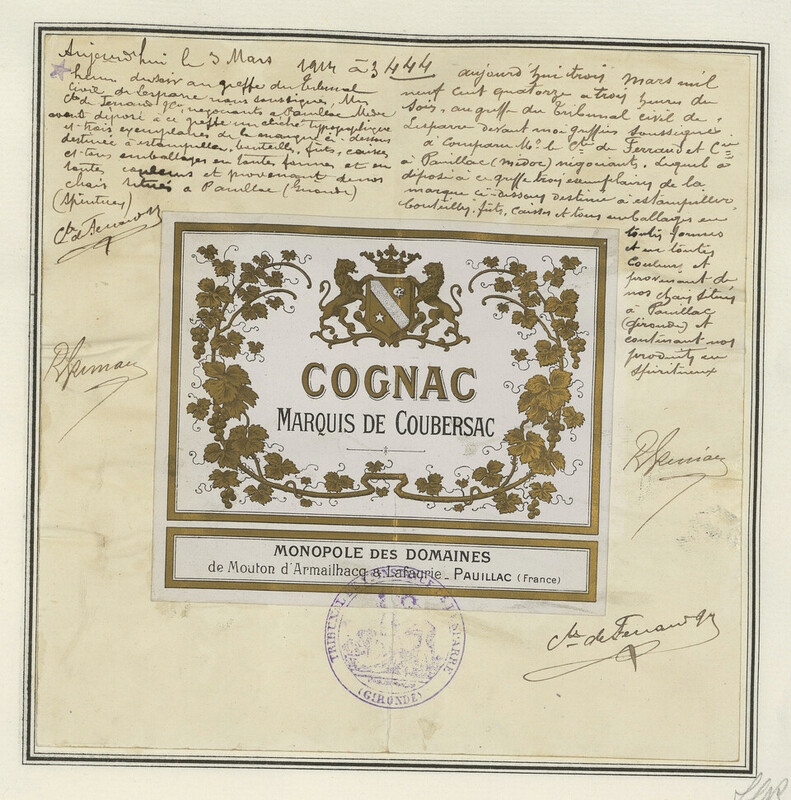 Aujourd'hui le 3 Mars 1914 à 3
444
heures du soir au greffe du Tribunal
Civil de Lesparre nous soussignés, Mrs
Cte de Ferrand & Cie, négociants à Pauillac Médoc
avons déposé à ce greffe un cliché typographique
et trois exemplaires de la marque ci-dessous
destinée à estampiller, bouteilles, fûts, caisses
et tous emballages en toutes formes et en
toutes couleurs et provenant de nos
chais situés à Pauillac (Gironde)
(Spiritueux)
Cte de Ferrand & Cie
aujourd'hui trois Mars mil
neuf cent quatorze à trois heures du
soir, au greffe du Tribunal civil de
Lesparre devant moi greffier soussigné
a comparu Mr. le Cte de Ferrand et Cie
à Pauillac (Médoc) négociants, lequel a
déposé à ce greffe trois exemplaires de la
marque ci-dessous destinée à estampiller
bouteilles, fûts, caisses et tous emballages en
toutes formes
et en toutes
couleurs et
provenant de
nos chais situés
à Pauillac
(Gironde) et
contenant nos
produits en
spiritueux
COGNAC
MARQUIS DE COUBERSAC
MONOPOLE DES DOMAINES
de Mouton d'Armailhacq & Lafaurie_ PAUILLAC (France)
TRIBUNAL DE LESPARRE
(GIRONDE)
Cte de Ferrand & Cie